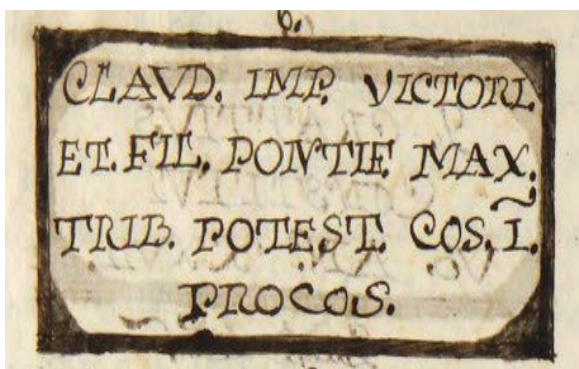 6.
CLAVD. IMP. VICTORI.
ET. FIL. PONTIF. MAX.
TRIB. POTEST. COS. Ĩ.
PROCOS.